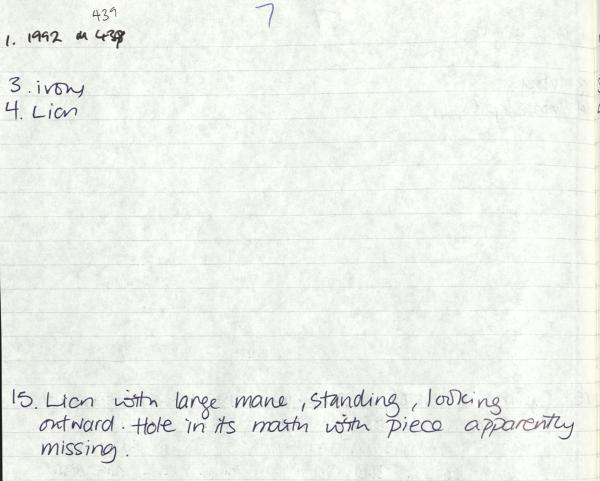 439
7
1. 1992 M 439
3. ivory
4. Lion
15. Lion with large mane, standing, looking
outward. Hole in its mouth with piece apparently
missing.